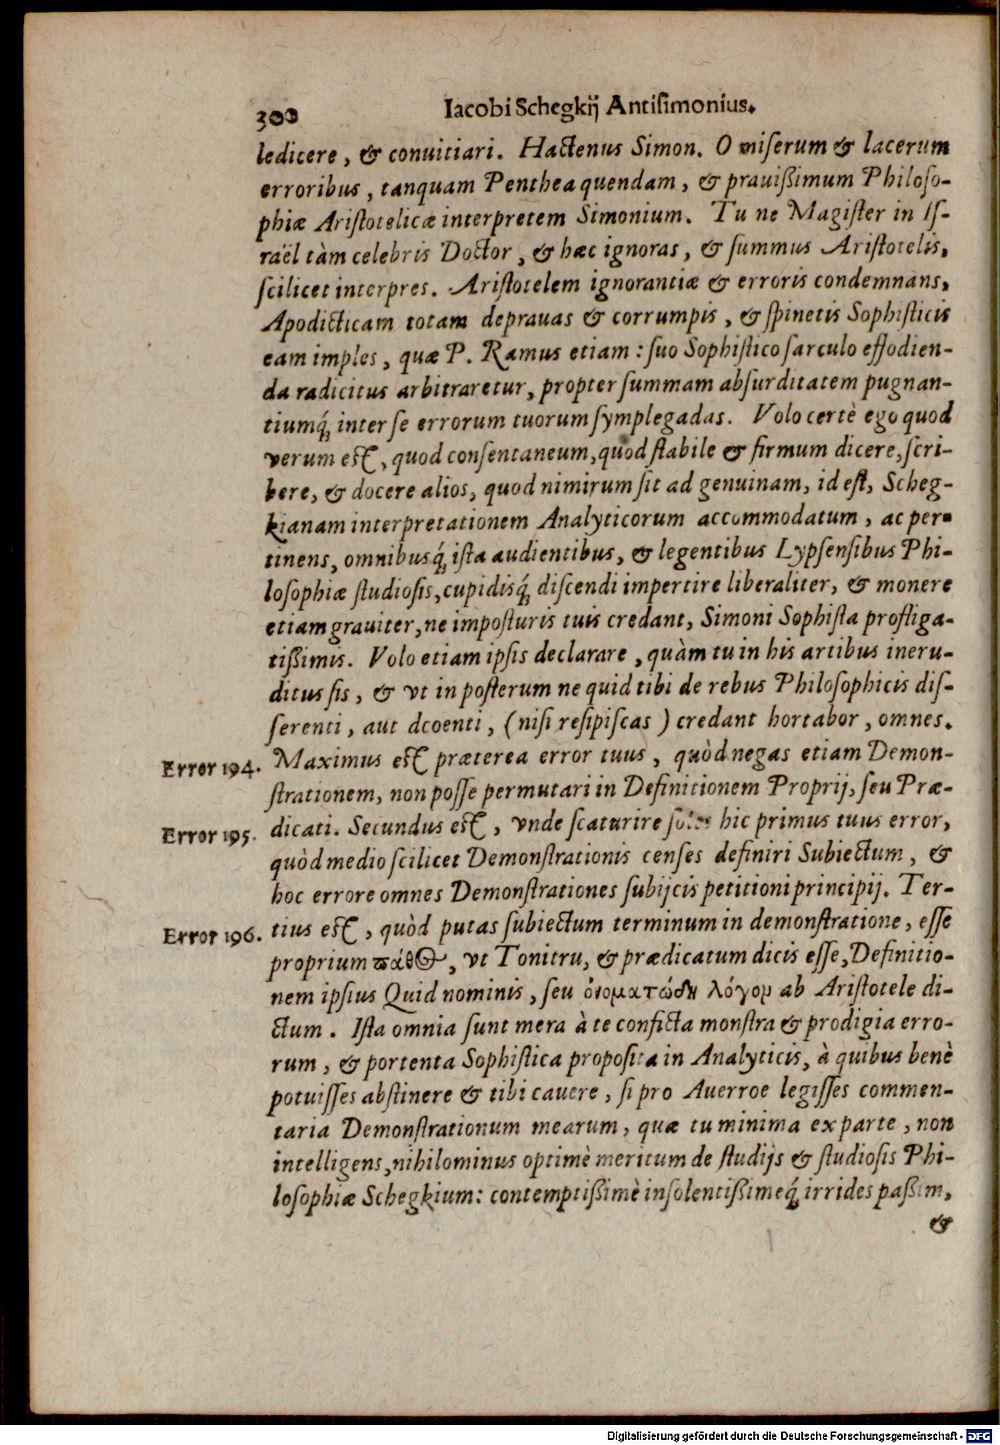 300 Iacobi Schegkij Antisimonius.
ledicere, & conuitiari. Hactenus Simon. O miserum & lacerum
erroribus, tanquam Penthea quendam, & prauißimum Philoso-
phiæ Aristotelicæ interpretem Simonium. Tu ne Magister in Is-
raël tàm celebris Doctor, & hæc ignoras, & summus Aristotelis,
scilicet interpres. Aristotelem ignorantiæ & erroris condemnans,
Apodicticam totam deprauas & corrumpis, & spinetis Sophisticis
eam imples, quæ P. Ramus etiam: suo Sophistico sarculo effodien-
da radicitus arbitraretur, propter summam absurditatem pugnan-
tiumq́; inter se errorum tuorum symplegadas. Volo certè ego quod
verum est, quod consentaneum, quod stabile & firmum dicere, scri-
bere, & docere alios, quod nimirum sit ad genuinam, id est, Scheg-
kianam interpretationem Analyticorum accommodatum, ac per-
tinens, omnibusq́; ista audientibus, & legentibus Lypsensibus Phi-
losophiæ studiosis, cupidisq́; discendi impertire liberaliter, & monere
etiam grauiter, ne imposturis tuis credant, Simoni Sophista profliga-
tißimis. Volo etiam ipsis declarare, quàm tu in his artibus ineru-
ditus sis, & vt in posterum ne quid tibi de rebus Philosophicis dis-
serenti, aut dcoenti, (nisi resipiscas) credant hortabor, omnes.
Error 194. Maximus est præterea error tuus, quòd negas etiam Demon-
strationem, non posse permutari in Definitionem Proprij, seu Præ-
Error 195. dicati. Secundus est, vnde scaturire solet hic primus tuus error,
quòd medio scilicet Demonstrationis censes definiri Subiectum, &
hoc errore omnes Demonstrationes subijcis petitioni principij. Ter-
Error 196. tius est, quòd putas subiectum terminum in demonstratione, esse
proprium πάθος, vt Tonitru, & prædicatum dicis esse, Definitio-
nem ipsius Quid nominis, seu ὀνοματώδη λόγον ab Aristotele di-
ctum. Ista omnia sunt mera à te conficta monstra & prodigia erro-
rum, & portenta Sophistica proposita in Analyticis, à quibus benè
potuisses abstinere & tibi cauere, si pro Auerroe legisses commen-
taria Demonstrationum mearum, quæ tu minima ex parte, non
intelligens, nihilominus optimè meritum de studijs & studiosis Phi-
losophiæ Schegkium: contemptißimè insolentißimeq́; irrides paßim,
&
Digitalisierung gefördert durch die Deutsche Forschungsgemeinschaft - DFG